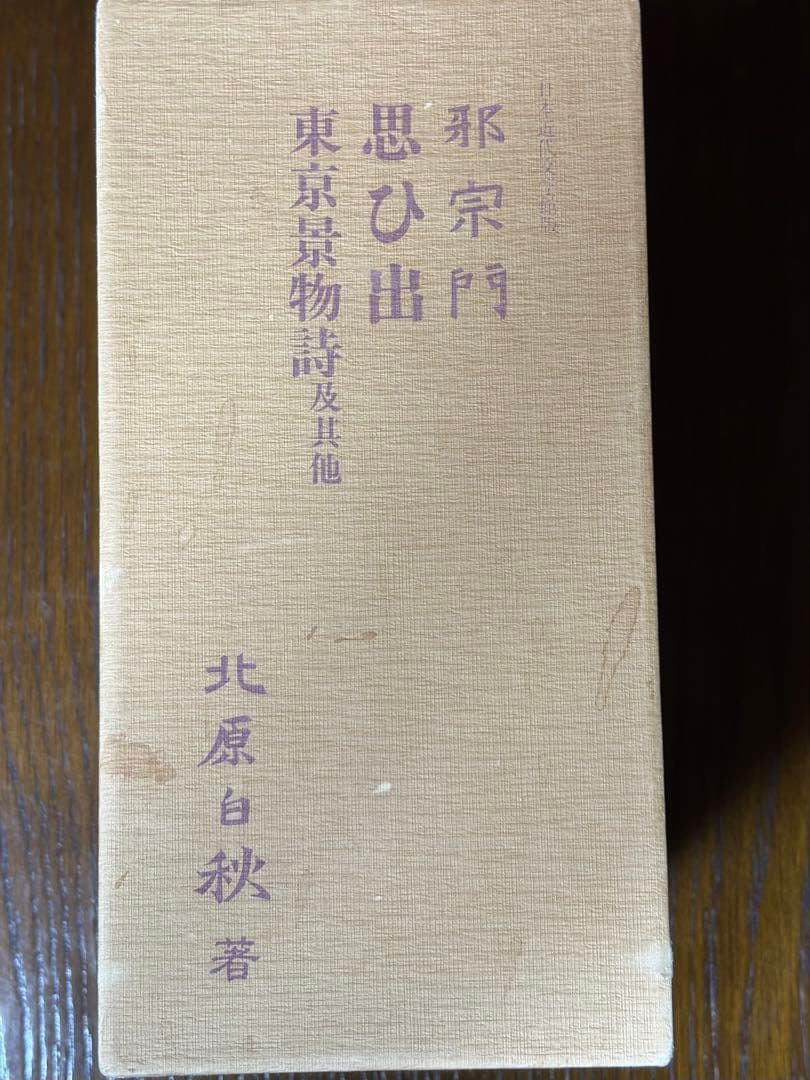 日本近代文学館版
邪宗門
思ひ出
東京景物詩及其他
北原白秋著